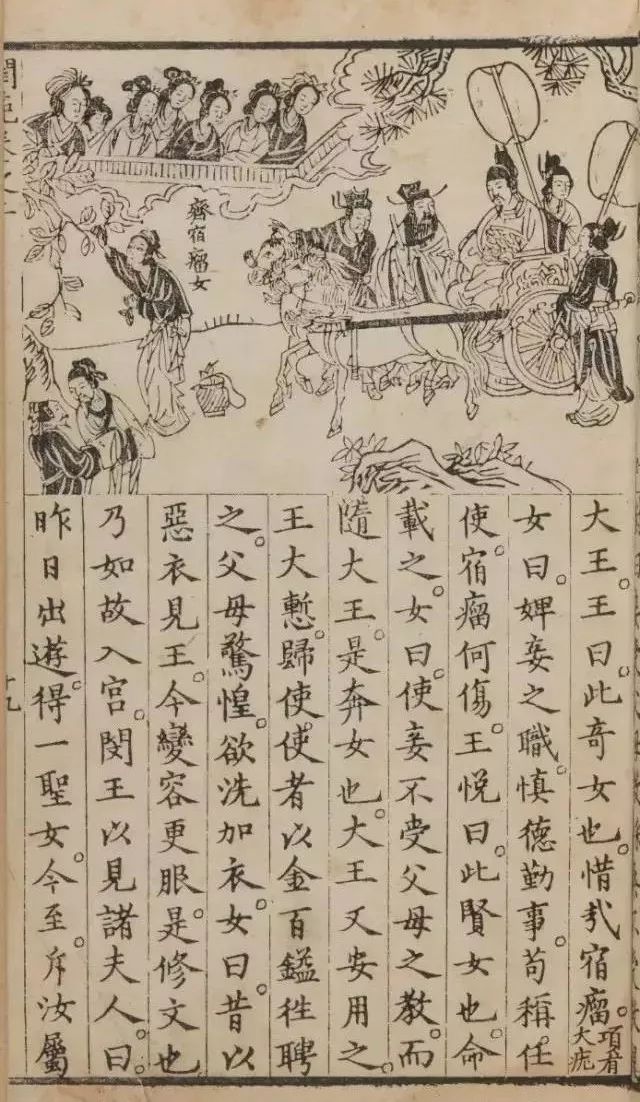 齊宿瘤女
大王。王曰。此奇女也。惜哉宿瘤。項有大疣
女曰。婢妾之職。慎德勤事。苟稱任
使。宿瘤何傷。王悅曰。此賢女也。命
載之。女曰。使妾不受父母之教。而
隨大王。是奔女也。大王又安用之。
王大慙。歸使。使者以金百鎰往聘
之。父母驚惶。欲洗加衣。女曰。昔以
惡衣見王。今變容更服。是修文也
乃如故入宮。閔王以見諸夫人。曰。
昨日出遊。得一聖女。今至。斥汝屬